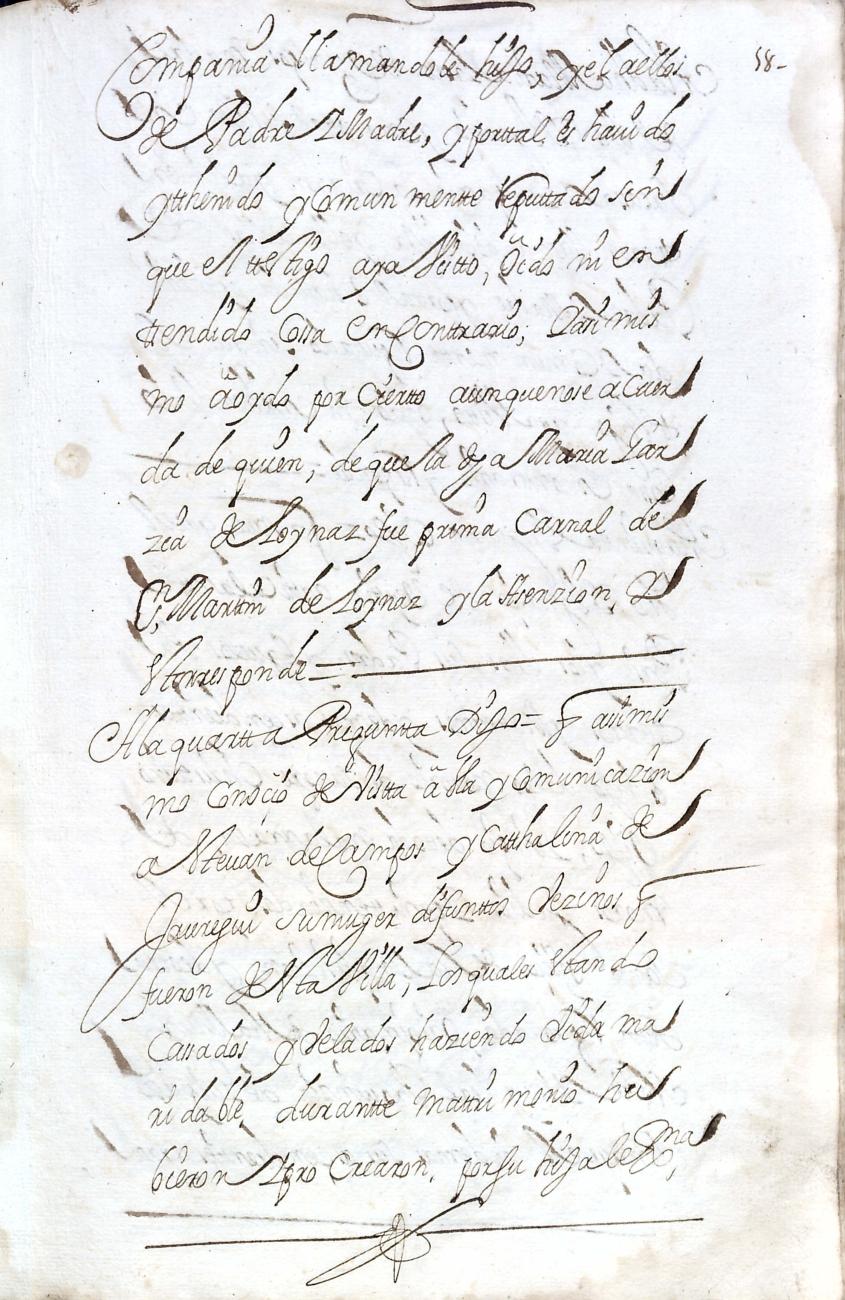 58-
Compania llamandole hijo, y el a ellos
de Padre Y Madre, y por ttal es havido
y tthenido y Comun mentte rreputtado sin
que el ttestigo aya Vistto, oido ni en
ttendido Cossa en Conttrario; Y asimis
mo a oydo por Cierto aunque no se a Cuer
da de quien, de que la dha Maria Gar
zia de Loynaz fue prima Carnal de
Dn. Martin de Loynaz y la Asenzion, Y
Rresponde =
A la quartta Preguntta Dijo = q asimis
mo Conocio de Vistta abla y Comunicazion
a Estevan de Campos y Catthalina de
Jauregui su muger difunttos Vezinos q
fueron de Esta Villa, Los quales Estando
Cassados y Velados haziendo Vida ma
ridable durantte mattrimonio hu
bieron Y pro Crearon, por su hija lexma,